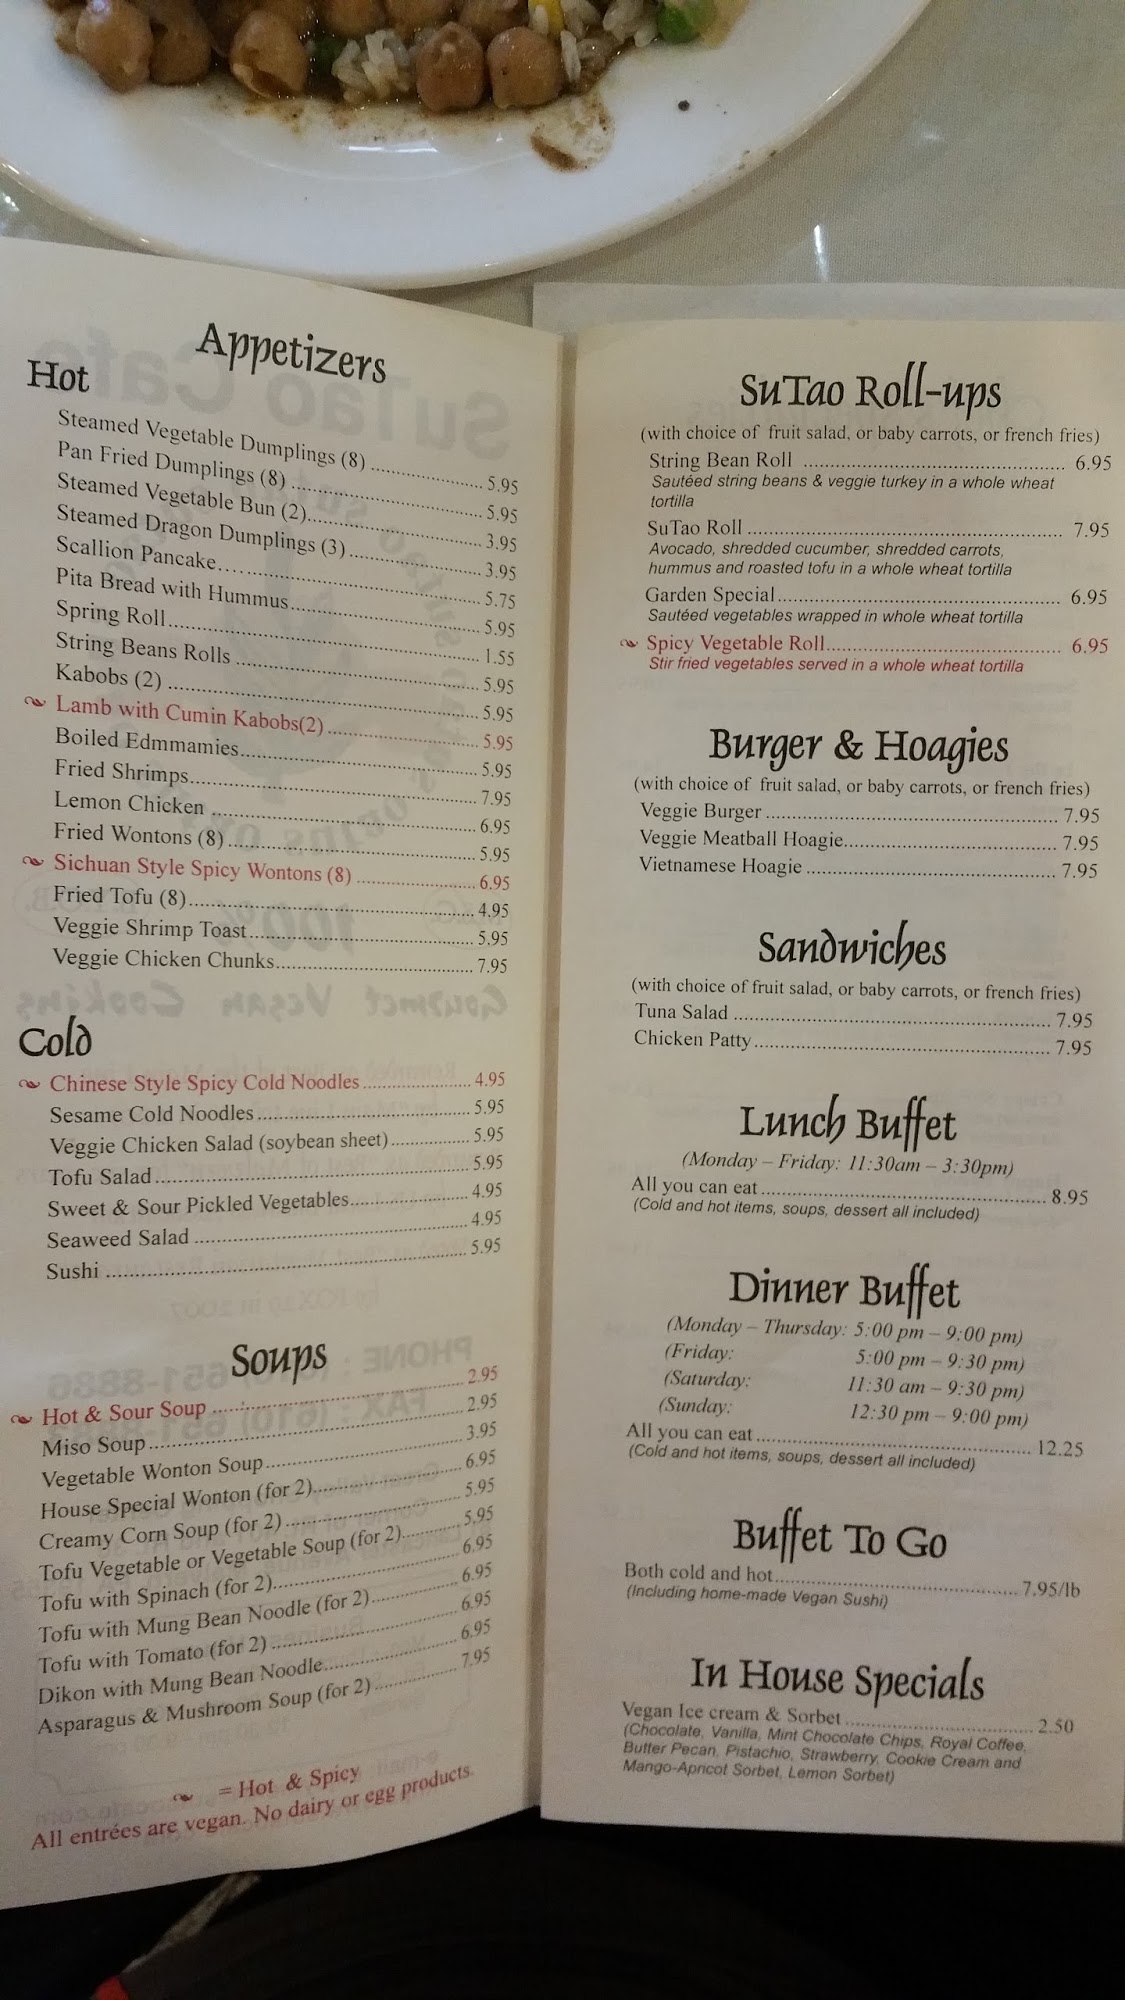 Appetizers
Hot
Steamed Vegetable Dumplings (8) ........ 5.95
Pan Fried Dumplings (8) ........ 5.95
Steamed Vegetable Bun (2)........ 3.95
Steamed Dragon Dumplings (3) ........ 3.95
Scallion Pancake........ 5.75
Pita Bread with Hummus........ 5.95
Spring Roll........ 1.55
String Beans Rolls ........ 5.95
Kabobs (2) ........ 5.95
Lamb with Cumin Kabobs(2) ........ 5.95
Boiled Edmmamies........ 5.95
Fried Shrimps........ 7.95
Lemon Chicken ........ 6.95
Fried Wontons (8)........ 5.95
Sichuan Style Spicy Wontons (8) ........ 6.95
Fried Tofu (8)........ 4.95
Veggie Shrimp Toast........ 5.95
Veggie Chicken Chunks........ 7.95
Cold
Chinese Style Spicy Cold Noodles ........ 4.95
Sesame Cold Noodles........ 5.95
Veggie Chicken Salad (soybean sheet)........ 5.95
Tofu Salad........ 5.95
Sweet & Sour Pickled Vegetables........ 4.95
Seaweed Salad ........ 4.95
Sushi ........ 5.95
Soups
Hot & Sour Soup ........ 2.95
Miso Soup........ 2.95
Vegetable Wonton Soup........ 3.95
House Special Wonton (for 2)........ 6.95
Creamy Corn Soup (for 2) ........ 5.95
Tofu Vegetable or Vegetable Soup (for 2)........ 5.95
Tofu with Spinach (for 2)........ 6.95
Tofu with Mung Bean Noodle (for 2)........ 6.95
Tofu with Tomato (for 2) ........ 6.95
Dikon with Mung Bean Noodle........ 6.95
Asparagus & Mushroom Soup (for 2)........ 7.95
= Hot & Spicy
All entrées are vegan. No dairy or egg products.
SuTao Roll-ups
(with choice of fruit salad, or baby carrots, or french fries)
String Bean Roll ........ 6.95
Sautéed string beans & veggie turkey in a whole wheat
tortilla
SuTao Roll ........ 7.95
Avocado, shredded cucumber, shredded carrots,
hummus and roasted tofu in a whole wheat tortilla
Garden Special........ 6.95
Sautéed vegetables wrapped in whole wheat tortilla
Spicy Vegetable Roll........ 6.95
Stir fried vegetables served in a whole wheat tortilla
Burger & Hoagies
(with choice of fruit salad, or baby carrots, or french fries)
Veggie Burger ........ 7.95
Veggie Meatball Hoagie........ 7.95
Vietnamese Hoagie ........ 7.95
Sandwiches
(with choice of fruit salad, or baby carrots, or french fries)
Tuna Salad ........ 7.95
Chicken Patty........ 7.95
Lunch Buffet
(Monday – Friday: 11:30am – 3:30pm)
All you can eat ........ 8.95
(Cold and hot items, soups, dessert all included)
Dinner Buffet
(Monday – Thursday: 5:00 pm – 9:00 pm)
(Friday: 5:00 pm – 9:30 pm)
(Saturday: 11:30 am – 9:30 pm)
(Sunday: 12:30 pm – 9:00 pm)
All you can eat ........ 12.25
(Cold and hot items, soups, dessert all included)
Buffet To Go
Both cold and hot........ 7.95/lb
(Including home-made Vegan Sushi)
In House Specials
Vegan Ice cream & Sorbet ........ 2.50
(Chocolate, Vanilla, Mint Chocolate Chips, Royal Coffee,
Butter Pecan, Pistachio, Strawberry, Cookie Cream and
Mango-Apricot Sorbet, Lemon Sorbet)